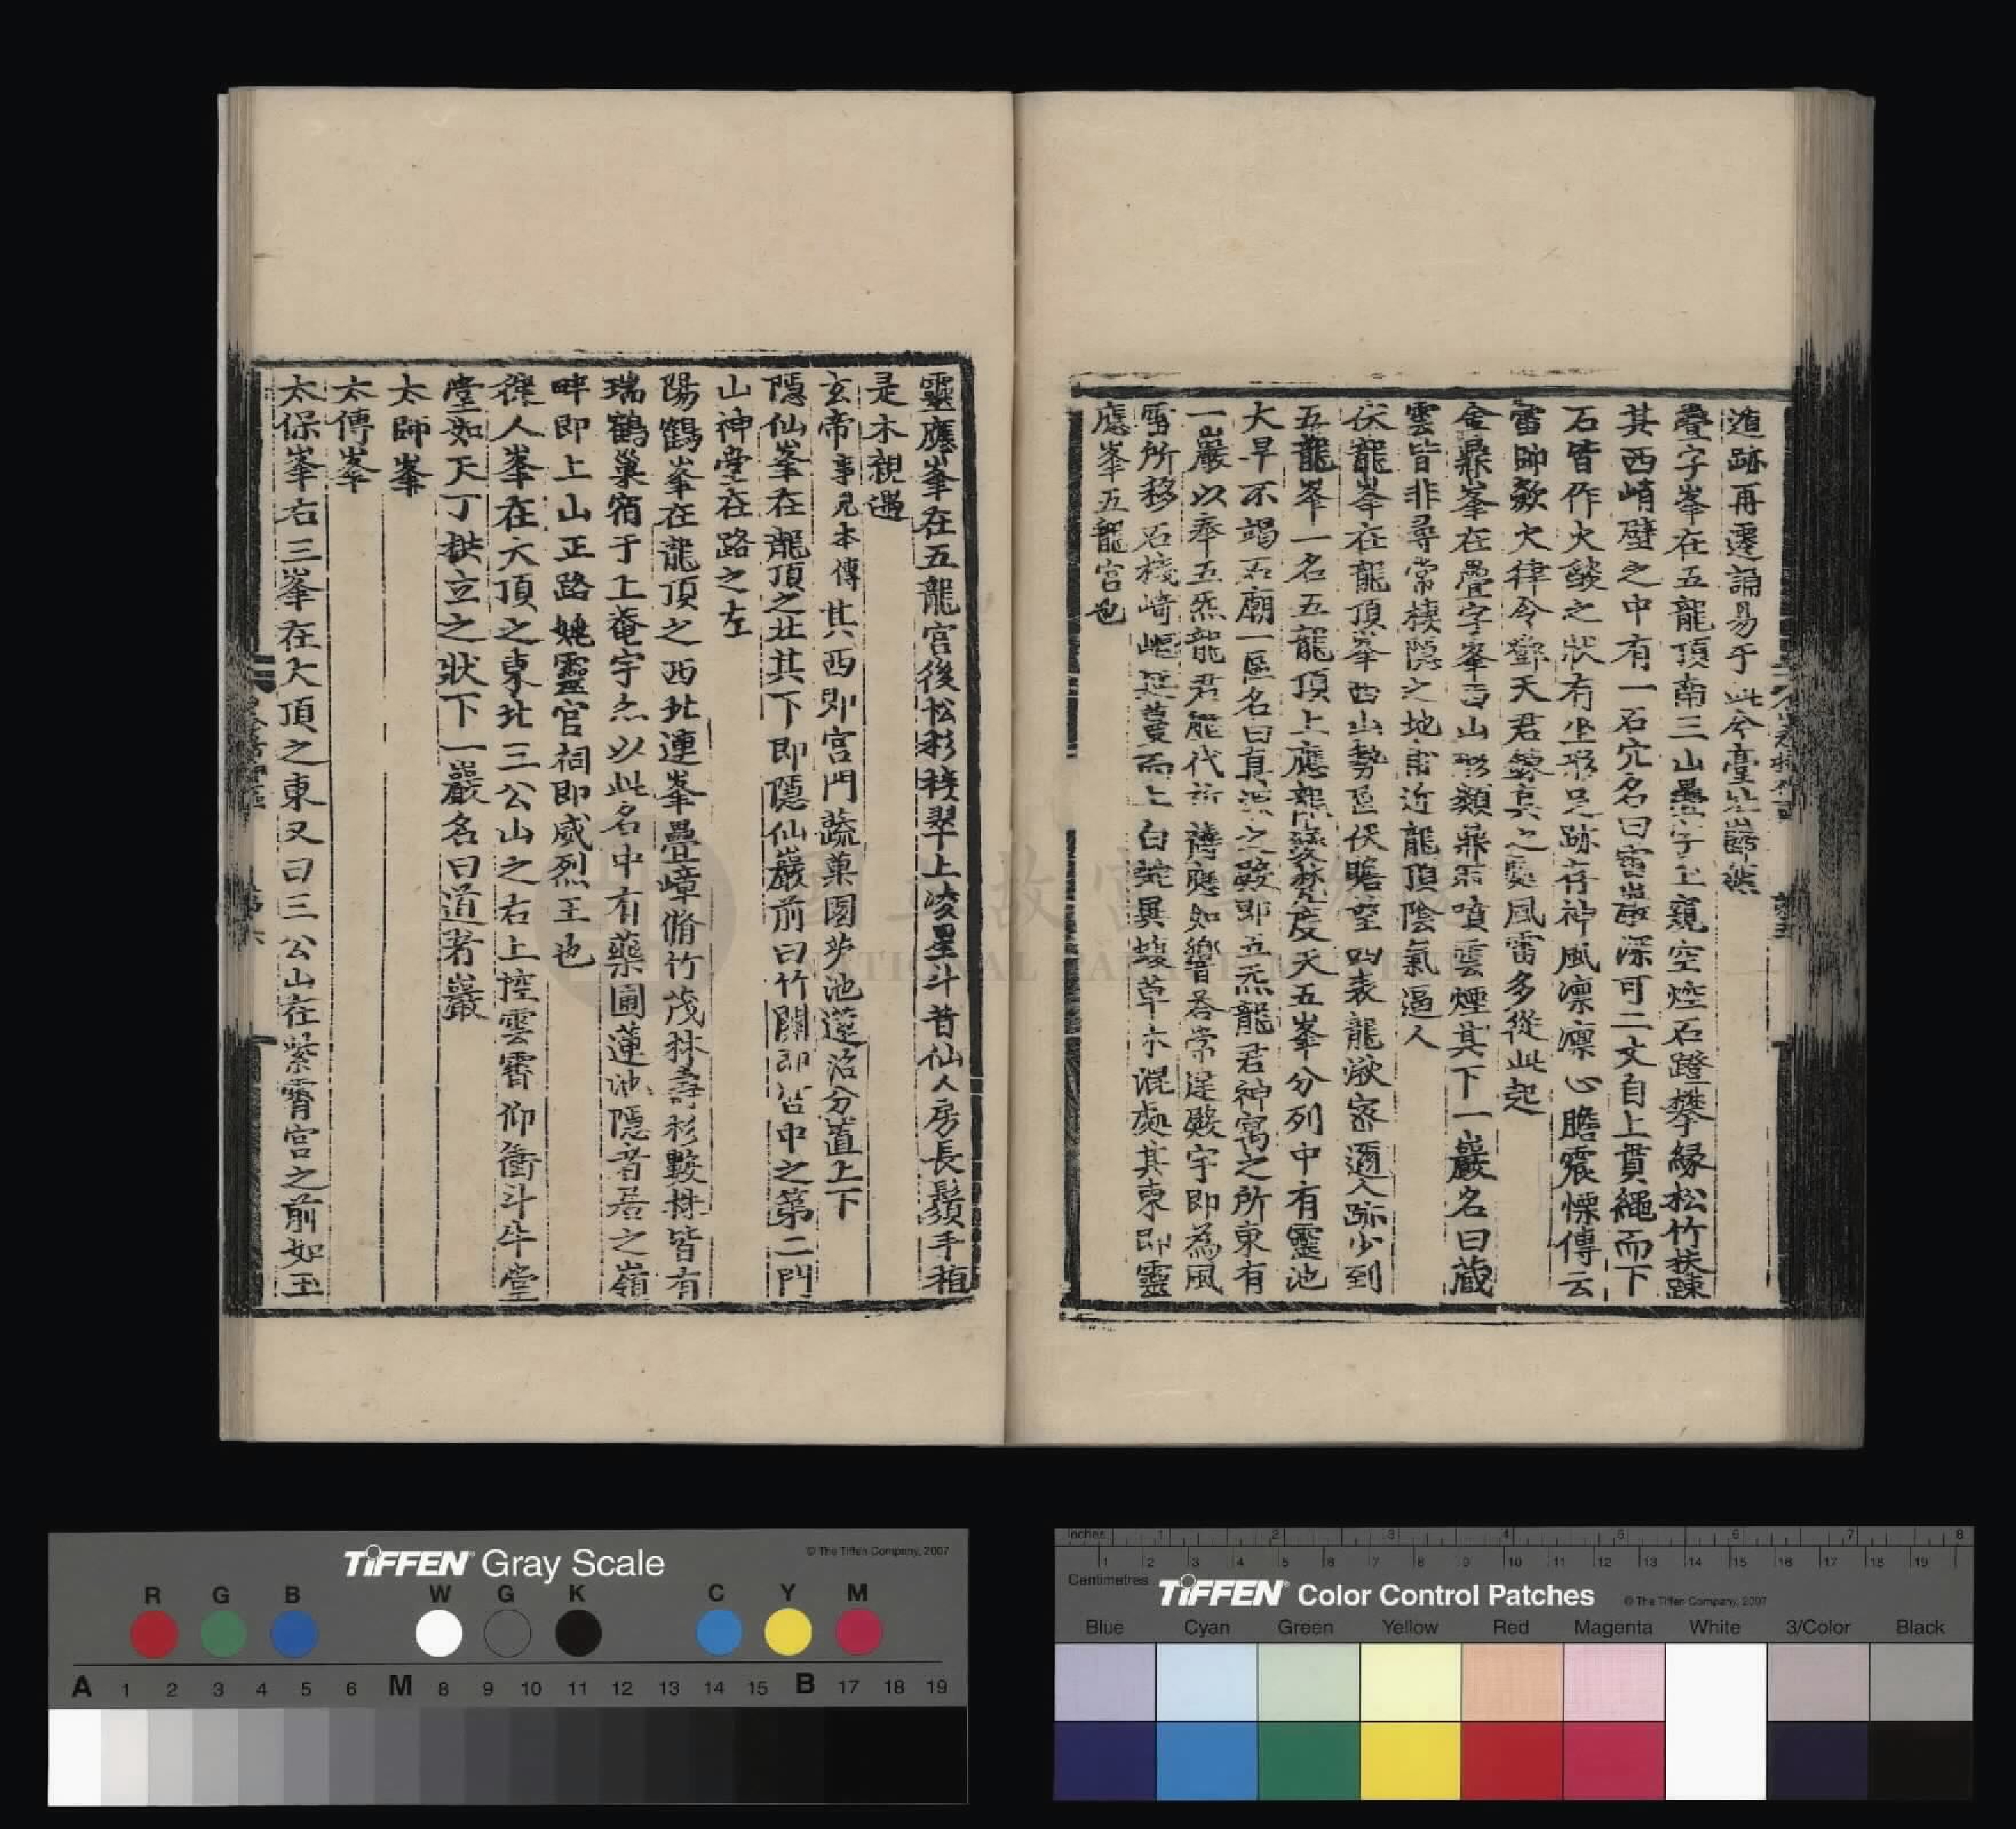 遁跡再遷誦易于此今臺址巋然
疊字峯在五龍頂南三山疊字上窺空焢石蹬攀緣松竹扶踈
其西峭壁之中有一石穴名曰雷 深可二丈自上貫繩而下
石皆作火燄之狀有坐形足跡存神風凛凛心膽震慄傳云
雷師歘火律令鄧天君 真之處風雷多從此起
金鼎峯在疊字峯 山形類鼎 噴雲煙其下一巖名曰藏
雲皆非尋常棲隱之地 近龍頂陰氣逼人
伏龍峯在龍頂峯西山勢 伏瞻望 表龍湫密邇人跡少到
五龍峯一名五龍頂上應 度天五峯分列中有靈池
大旱不竭石廟一區名曰真源之殿即五炁龍君神寓之所東有
一巖以奉五炁龍君能代祈禱應如響荅常建殿宇即為風
雷所移石棧崎嶇延蔓而上白蛇異 草木混處其東即靈
應峯五龍宮也
靈應峯在五龍宮後松杉積翠上凌星斗昔仙人房長鬚手植
是木親遇
玄帝事見本傳其西則宮門蔬菓園 池蓮沼分置上下
隱仙峯在龍頂之北其下即隱仙巖前曰竹關即宮中之第二門
山神堂在路之左
陽鶴峯在龍頂之西北連峯疊嶂脩竹茂林壽杉數株皆有
瑞鶴巢宿于上菴宇亦以此名中有藥圃蓮池隱者居之嶺
畔即上山正路姚靈官祠即威烈王也
健人峯在大頂之東北三公山之右上控雲霄仰衝斗牛堂
堂如天丁拱立之狀下一巖名曰道者巖
太師峯
太傅峯
太保峯右三峯在大頂之東又曰三公山在紫霄宮之前如玉
國立故宮博物院
NATIONAL PALACE MUSEUM
TIFFEN Gray Scale
© The Tiffen Company, 2007
R G B W G K C Y M
A 1 2 3 4 5 6 M 8 9 10 11 12 13 14 15 B 17 18 19
Inches 1 2 3 4 5 6 7 8
Centimetres 1 2 3 4 5 6 7 8 9 10 11 12 13 14 15 16 17 18 19
TIFFEN Color Control Patches
© The Tiffen Company, 2007
Blue Cyan Green Yellow Red Magenta White 3/Color Black